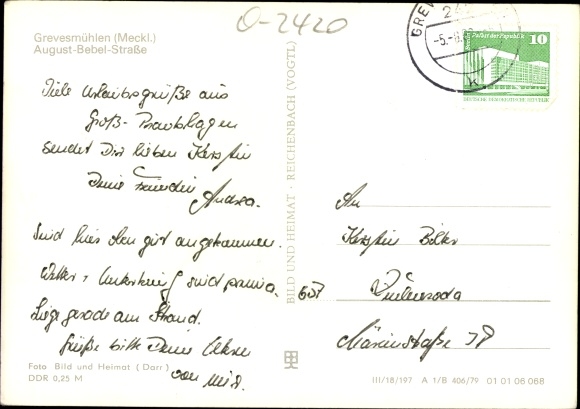 O-2420
Grevesmühlen (Meckl.)
August-Bebel-Straße
Viele Urlaubsgrüße aus
Groß-
sendet Dir lieben Kerstin
Deine Freundin
Andrea.
Sind hier oben gut angekommen.
Wetter, Unterkunft sind prima.
Liege gerade am Strand.
Grüße bitte Deine Eltern
von mir.
Foto Bild und Heimat (Darr)
DDR 0,25 M
BILD UND HEIMAT · REICHENBACH (VOGTL)
GREV
-5.-8.
K
Palast der Republik 10
DEUTSCHE DEMOKRATISCHE REPUBLIK
An
Kerstin
657
Märienstraße 38
III/18/197 A 1/B 406/79 01 01 06 068